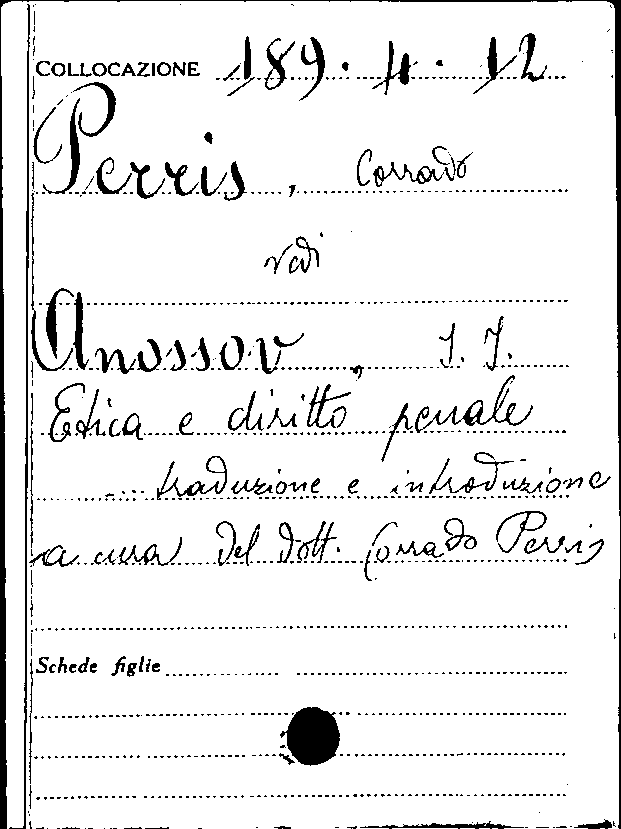 COLLOCAZIONE 189.4.12
Perris, Corrado
vdi
Anossov, J. J.
Etica e diritto penale
.... traduzione e introduzione
a cura del dott. Corrado Perris
Schede figlie